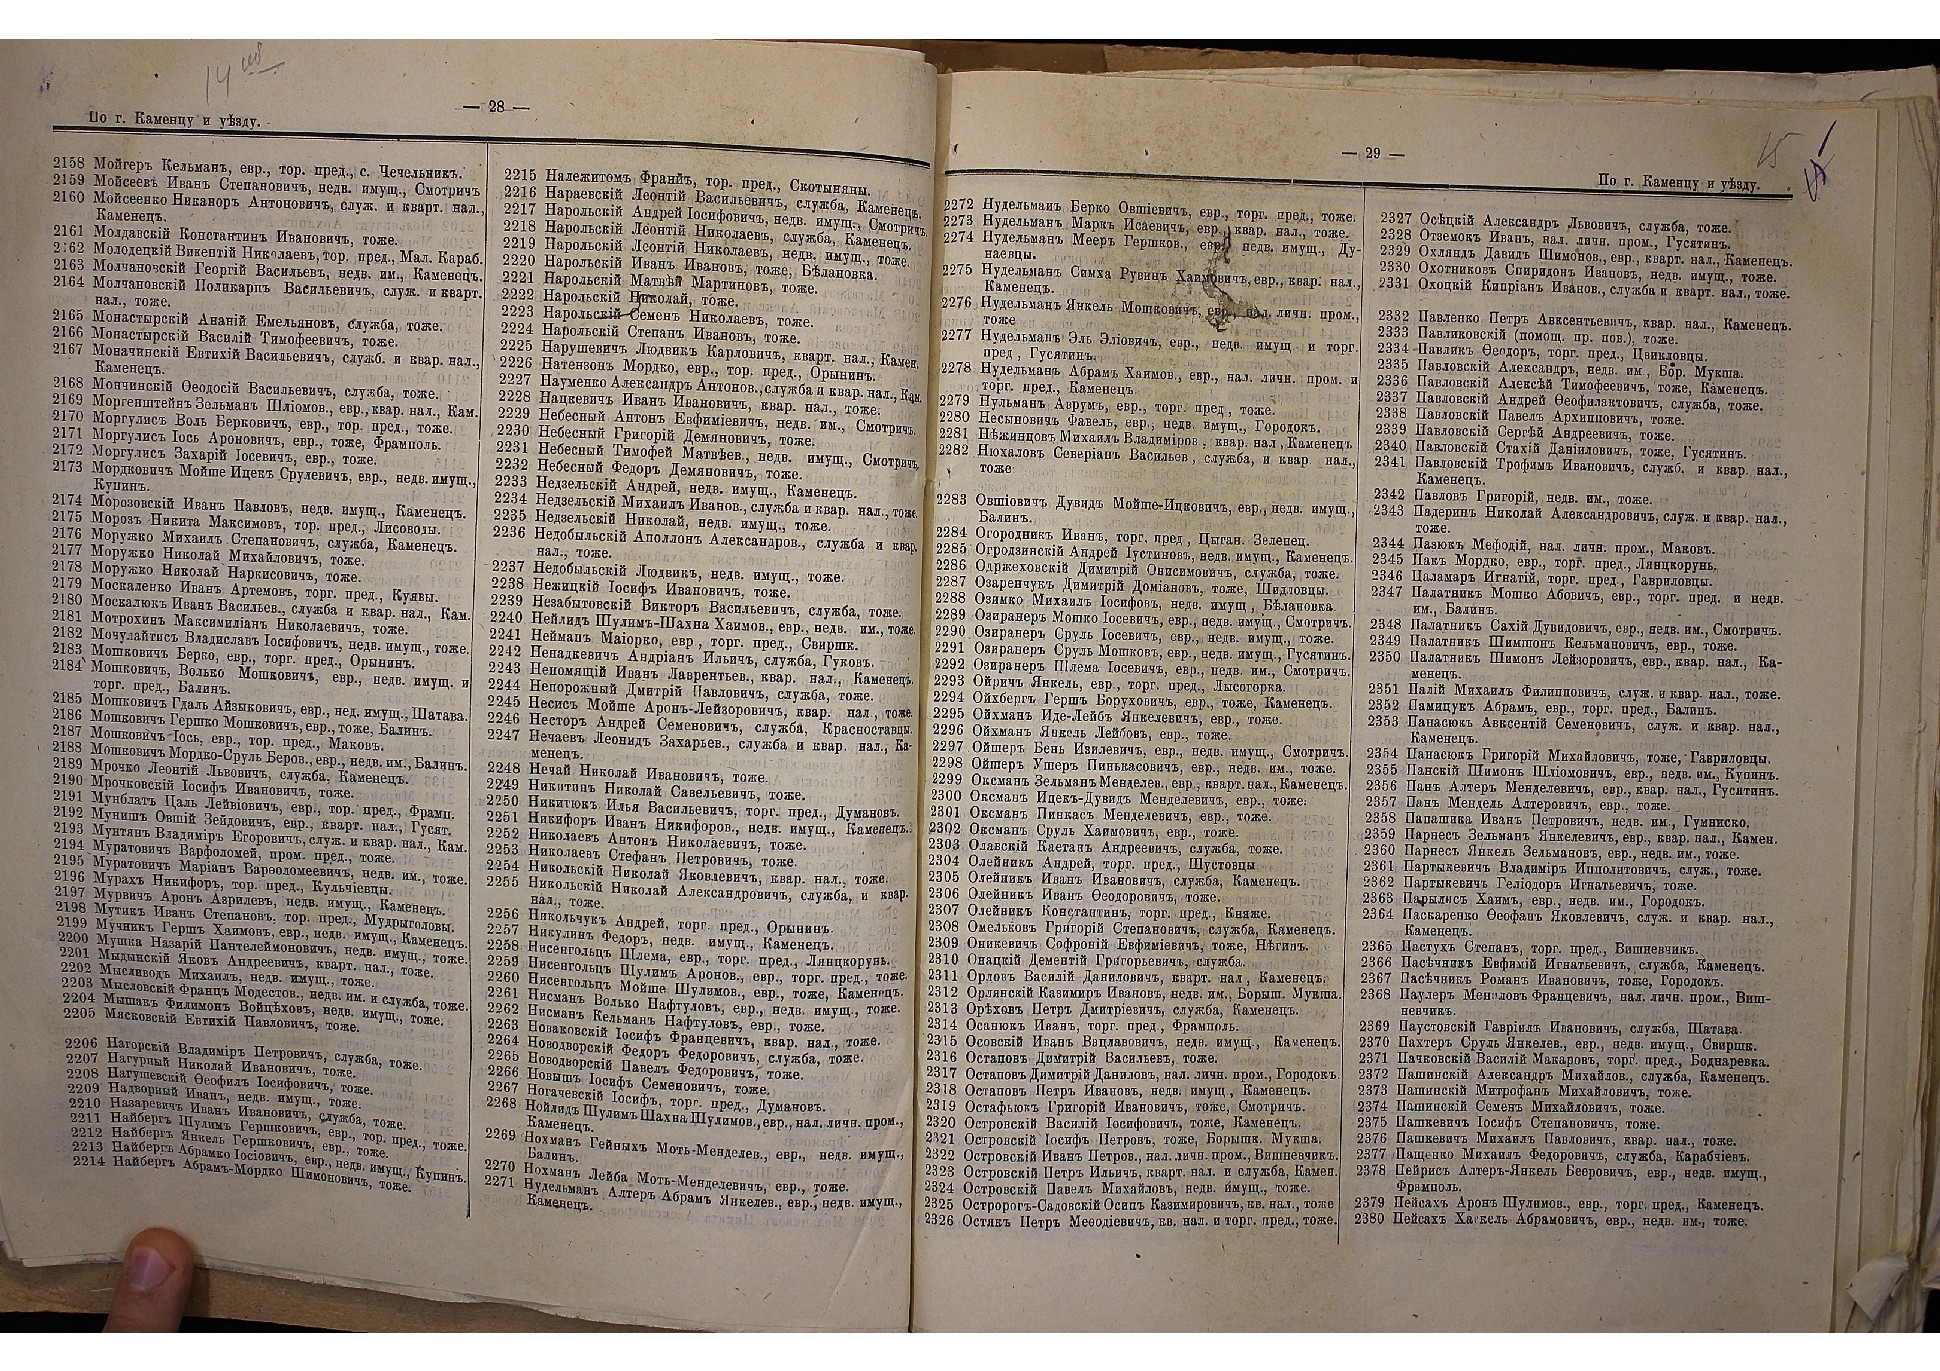 14
— 28 —
По г. Каменцу и уѣзду.
2158 Мойгеръ Кельманъ, евр., тор. пред., с. Чечельникъ.
2159 Мойсеевъ Иванъ Степановичъ, недв. имущ., Смотричъ
2160 Мойсеенко Никаноръ Антоновичъ, служ. и кварт. нал.,
Каменецъ.
2161 Молдавскій Константинъ Ивановичъ, тоже.
2162 Молодецкій Викентій Николаевъ, тор. пред., Мал. Караб.
2163 Молчановскій Георгій Васильевъ, недв. им., Каменецъ.
2164 Молчановскій Поликарпъ Васильевъ, служ. и кварт.
нал., тоже.
2165 Монастырскій Ананій Емельяновъ, служба, тоже.
2166 Монастырскій Василій Тимофеевичъ, тоже.
2167 Моначинскій Евтихій Васильевичъ, служб. и квар. нал.,
Каменецъ.
2168 Мончинскій Ѳеодосій Васильевичъ, служба, тоже.
2169 Моргенштейнъ Зельманъ Шліомов., евр., квар. нал., Кам.
2170 Моргулисъ Воль Берковичъ, евр., тор. пред., тоже.
2171 Моргулисъ Іось Ароновичъ, евр., тоже, Фрамполь.
2172 Моргулисъ Захарій Іосевичъ, евр., тоже.
2173 Мордковичъ Мойше Ицекъ Срулевичъ, евр., недв. имущ.,
Купинъ.
2174 Морозовскій Иванъ Павловъ, недв. имущ., Каменецъ.
2175 Морозъ Никита Максимовъ, тор. пред., Лисоводы.
2176 Моружко Михаилъ Степановичъ, служба, Каменецъ.
2177 Моружко Николай Михайловичъ, тоже.
2178 Моружко Николай Наркисовичъ, тоже.
2179 Москаленко Иванъ Артемовъ, торг. пред., Куявы.
2180 Москалюкъ Иванъ Васильев., служба и квар. нал., Кам.
2181 Мотрохинъ Максимиліанъ Николаевичъ, тоже.
2182 Мочулайтисъ Владиславъ Іосифовичъ, недв. имущ., тоже.
2183 Мошковичъ Берко, евр., торг. пред., Орынинъ.
2184 Мошковичъ, Волько Мошковичъ, евр., недв. имущ. и
торг. пред., Балинъ.
2185 Мошковичъ Гдаль Айзыковичъ, евр., нед. имущ., Шатава.
2186 Мошковичъ Гершко Мошковичъ, евр., тоже, Балинъ.
2187 Мошковичъ Іось, евр., тор. пред., Маковъ.
2188 Мошковичъ Мордко-Сруль Беров., евр., недв. им., Балинъ.
2189 Мрочко Леонтій Львовичъ, служба, Каменецъ.
2190 Мрочковскій Іосифъ Ивановичъ, тоже.
2191 Мунблатъ Цаль Лейвіовичъ, евр., тор. пред., Фрамп.
2192 Мунишъ Овшій Зейдовичъ, евр., кварт. нал., Гусят.
2193 Мунтянъ Владиміръ Егоровичъ, служ. и квар. нал., Кам.
2194 Муратовичъ Варфоломей, пром. пред., тоже.
2195 Муратовичъ Маріанъ Варѳоломеевичъ, недв. им., тоже.
2196 Мурахъ Никифоръ, тор. пред., Кульчіевцы.
2197 Мурвичъ Аронъ Аврилевъ, недв. имущ., Каменецъ.
2198 Мутикъ Иванъ Степановъ, тор. пред., Мудрыголовы.
2199 Мучникъ Гершъ Хаимовъ, евр., недв. имущ., Каменецъ.
2200 Мушка Назарій Пантелеймоновичъ, недв. имущ., тоже.
2201 Мыдынскій Яковъ Андреевичъ, кварт. нал., тоже.
2202 Мысливодъ Михаилъ, недв. имущ., тоже.
2203 Мысловскій Францъ Модестов., недв. им. и служба, тоже.
2204 Мышакъ Филимонъ Войцѣховъ, недв. имущ., тоже.
2205 Мясковскій Евтихій Павловичъ, тоже.
2206 Нагорскій Владиміръ Петровичъ, служба, тоже.
2207 Нагурный Николай Ивановичъ, тоже.
2208 Нагушевскій Ѳеофилъ Іосифовичъ, тоже.
2209 Надворный Иванъ, недв. имущ., тоже.
2210 Назаревичъ Иванъ Ивановичъ, служба, тоже.
2211 Найбергъ Шулимъ Гершковичъ, евр., тор. пред., тоже.
2212 Найбергъ Янкель Гершковичъ, евр., тоже.
2213 Найбергъ Абрамко Іосіовичъ, евр., недв. имущ., Купинъ.
2214 Найбергъ Абрамъ-Мордко Шимоновичъ, тоже.
2215 Належитомъ Франй, тор. пред., Скотыняны.
2216 Нараевскій Леонтій Васильевичъ, служба, Каменецъ.
2217 Нарольскій Андрей Іосифовичъ, недв. имущ., Смотричъ.
2218 Нарольскій Леонтій Николаевъ, служба, Каменецъ.
2219 Нарольскій Леонтій Николаевъ, недв. имущ., тоже.
2220 Нарольскій Иванъ Ивановъ, тоже, Бѣлановка.
2221 Нарольскій Матвѣй Мартиновъ, тоже.
2222 Нарольскій Николай, тоже.
2223 Нарольскій Семенъ Николаевъ, тоже.
2224 Нарольскій Степанъ Ивановъ, тоже.
2225 Нарушевичъ Людвикъ Карловичъ, кварт. нал., Камен.
2226 Натензонъ Мордко, евр., тор. пред., Орынинъ.
2227 Науменко Александръ Антонов., служба и квар. нал., Кам.
2228 Нацкевичъ Иванъ Ивановичъ, квар. нал., тоже.
2229 Небесный Антонъ Евфиміевичъ, недв. им., Смотричъ.
2230 Небесный Григорій Демяновичъ, тоже.
2231 Небесный Тимофей Матвѣев., недв. имущ., Смотричъ.
2232 Небесный Федоръ Демяновичъ, тоже.
2233 Недзельскій Андрей, недв. имущ., Каменецъ.
2234 Недзельскій Михаилъ Иванов., служба и квар. нал., тоже.
2235 Недзельскій Николай, недв. имущ., тоже.
2236 Недобыльскій Аполлонъ Александров., служба и квар.
нал., тоже.
2237 Недобыльскій Людвикъ, недв. имущ., тоже.
2238 Нежицкій Іосифъ Ивановичъ, тоже.
2239 Незабытовскій Викторъ Васильевичъ, служба, тоже.
2240 Нейлидъ Шулимъ-Шахна Хаимов., евр., недв. им., тоже.
2241 Нейманъ Маіорко, евр., торг. пред., Свиршк.
2242 Ненадкевичъ Андріанъ Ильичъ, служба, Гуковъ.
2243 Непомящій Иванъ Лаврентьев., квар. нал., Каменецъ.
2244 Непорожный Дмитрій Павловичъ, служба, тоже.
2245 Несисъ Мойше Аронъ-Лейзоровичъ, квар. нал., тоже.
2246 Несторъ Андрей Семеновичъ, служба, Красноставцы.
2247 Нечаевъ Леонидъ Захарьев., служба и квар. нал., Ка-
менецъ.
2248 Нечай Николай Ивановичъ, тоже.
2249 Никитинъ Николай Савельевичъ, тоже.
2250 Никитюкъ Илья Васильевичъ, торг. пред., Думановъ.
2251 Никифоръ Иванъ Никифоров., недв. имущ., Каменецъ.
2252 Николаевъ Антонъ Николаевичъ, тоже.
2253 Николаевъ Стефанъ Петровичъ, тоже.
2254 Никольскій Николай Яковлевичъ, квар. нал., тоже.
2255 Никольскій Николай Александровичъ, служба, и квар.
нал., тоже.
2256 Никольчукъ Андрей, торг. пред., Орынинъ.
2257 Никулинъ Федоръ, недв. имущ., Каменецъ.
2258 Нисенгольцъ Шлема, евр., торг. пред., Лянцкорунь.
2259 Нисенгольцъ Шулимъ Аронов., евр., торг. пред., тоже.
2260 Нисенгольцъ Мойше Шулимов., евр., тоже, Каменецъ.
2261 Нисманъ Волько Нафтуловъ, евр., недв. имущ., тоже.
2262 Нисманъ Кельманъ Нафтуловъ, евр., тоже.
2263 Новаковскій Іосифъ Францевичъ, квар. нал., тоже.
2264 Новодворскій Федоръ Федоровичъ, служба, тоже.
2265 Новодворскій Павелъ Федоровичъ, тоже.
2266 Новышъ Іосифъ Семеновичъ, тоже.
2267 Ногачевскій Іосифъ, торг. пред., Думановъ.
2268 Нойлидъ Шулимъ Шахна Шулимов., евр., нал. личн. пром.,
Каменецъ.
2269 Нохманъ Гейныхъ Моть-Менделев., евр., недв. имущ.,
Балинъ.
2270 Нохманъ Лейба Моть-Менделевичъ, евр., тоже.
2271 Нудельманъ Алтеръ Абрамъ Янкелев., евр., недв. имущ.,
Каменецъ.
— 29 —
15
По г. Каменцу и уѣзду.
2272 Нудельманъ Берко Овшіевичъ, евр., торг. пред., тоже.
2273 Нудельманъ Маркъ Исаевичъ, евр., квар. нал., тоже.
2274 Нудельманъ Мееръ Гершков., евр., недв. имущ., Ду-
наевцы.
2275 Нудельманъ Симха Рувинъ Хаимовичъ, евр., квар. нал.,
Каменецъ.
2276 Нудельманъ Янкель Мошковичъ, евр., нал. личн. пром.,
тоже
2277 Нудельманъ Эль Эліовичъ, евр., недв. имущ. и торг.
пред., Гусятинъ.
2278 Нудельманъ Абрамъ Хаимов., евр., нал. личн. пром. и
торг. пред., Каменецъ.
2279 Нульманъ Аврумъ, евр., торг. пред., тоже.
2280 Несыновичъ Фавель, евр., недв. имущ., Городокъ.
2281 Нѣжинцовъ Михаилъ Владиміров., квар. нал., Каменецъ
2282 Нюхаловъ Северіанъ Васильев., служба, и квар. нал.,
тоже
2283 Овшіовичъ Дувидъ Мойше-Ицковичъ, евр., недв. имущ.,
Балинъ.
2284 Огородникъ Иванъ, торг. пред., Цыган. Зеленец.
2285 Огродзинскій Андрей Іустинов., недв. имущ., Каменецъ.
2286 Одржеховскій Димитрій Онисимовичъ, служба, тоже.
2287 Озаренчукъ Димитрій Доміановъ, тоже, Шидловцы.
2288 Озимко Михаилъ Іосифовъ, недв. имущ., Бѣлановка.
2289 Озиранеръ Мошко Іосевичъ, евр., недв. имущ., Смотричъ.
2290 Озиранеръ Сруль Іосевичъ, евр., недв. имущ., тоже.
2291 Озиранеръ Сруль Мошков., евр., недв. имущ., Гусятинъ.
2292 Озиранеръ Шлема Іосевичъ, евр., недв. им., Смотричъ.
2293 Ойричъ Янкель, евр., торг. пред., Лысогорка.
2294 Ойхбергъ Гершъ Боруховичъ, евр., тоже, Каменецъ.
2295 Ойхманъ Иде-Лейбъ Янкелевичъ, евр., тоже.
2296 Ойхманъ Янкель Лейбовъ, евр., тоже.
2297 Ойшеръ Бень Изилевичъ, евр., недв. имущ., Смотричъ.
2298 Ойшеръ Ушеръ Пинькасовичъ, евр., недв. им., тоже.
2299 Оксманъ Зельманъ Менделев., евр., кварт. нал., Каменецъ.
2300 Оксманъ Ицекъ-Дувидъ Менделевичъ, евр., тоже.
2301 Оксманъ Пинкасъ Менделевичъ, евр., тоже.
2302 Оксманъ Сруль Хаимовичъ, евр., тоже.
2303 Олавскій Каетанъ Андреевичъ, служба, тоже.
2304 Олейникъ Андрей, торг. пред., Шустовцы
2305 Олейникъ Иванъ Ивановичъ, служба, Каменецъ.
2306 Олейникъ Иванъ Ѳеодоровичъ, тоже.
2307 Олейникъ Константинъ, торг. пред., Княже.
2308 Омельковъ Григорій Степановичъ, служба, Каменецъ.
2309 Оникевичъ Софроній Евфиміевичъ, тоже, Нѣгинъ.
2310 Онацкій Дементій Григорьевичъ, служба.
2311 Орловъ Василій Даниловичъ, кварт. нал., Каменецъ.
2312 Орлянскій Казимиръ Ивановъ, недв. им., Борыш. Мукша.
2313 Орѣховъ Петръ Дмитріевичъ, служба, Каменецъ.
2314 Осанюкъ Иванъ, торг. пред., Фрамполь.
2315 Осовскій Иванъ Вацлавовичъ, недв. имущ., Каменецъ.
2316 Остаповъ Димитрій Васильевъ, тоже.
2317 Остаповъ Димитрій Даниловъ, нал. личн. пром., Городокъ.
2318 Остаповъ Петръ Ивановъ, недв. имущ., Каменецъ.
2319 Остафьюкъ Григорій Ивановичъ, тоже, Смотричъ.
2320 Островскій Василій Іосифовичъ, тоже, Каменецъ.
2321 Островскій Іосифъ Петровъ, тоже, Борышк. Мукша.
2322 Островскій Иванъ Петров., нал. личн. пром., Вишневчикъ.
2323 Островскій Петръ Ильичъ, кварт. нал. и служба, Камен.
2324 Островскій Павелъ Михайловъ, недв. имущ., тоже.
2325 Остророгъ-Садовскій Осипъ Казимировичъ, кв. нал., тоже
2326 Остякъ Петръ Меѳодіевичъ, кв. нал. и торг. пред., тоже.
2327 Осѣцкій Александръ Львовичъ, служба, тоже.
2328 Отземокъ Иванъ, нал. личн. пром., Гусятинъ.
2329 Охляндъ Давидъ Шимонов., евр., кварт. нал., Каменецъ.
2330 Охотниковъ Спиридонъ Ивановъ, недв. имущ., тоже.
2331 Охоцкій Кипріанъ Иванов., служба и кварт. нал., тоже.
2332 Павленко Петръ Авксентьевичъ, квар. нал., Каменецъ.
2333 Павликовскій (помощ. пр. пов.), тоже.
2334 Павликъ Ѳеодоръ, торг. пред., Цвикловцы.
2335 Павловскій Александръ, недв. им., Бор. Мукша.
2336 Павловскій Алексѣй Тимофеевичъ, тоже, Каменецъ.
2337 Павловскій Андрей Ѳеофилактовичъ, служба, тоже.
2338 Павловскій Павелъ Архипповичъ, тоже.
2339 Павловскій Сергѣй Андреевичъ, тоже.
2340 Павловскій Стахій Даніиловичъ, тоже, Гусятинъ.
2341 Павловскій Трофимъ Ивановичъ, служб. и квар. нал.,
Каменецъ.
2342 Павловъ Григорій, недв. им., тоже.
2343 Падеринъ Николай Александровичъ, служ. и квар. нал.,
тоже.
2344 Пазюкъ Мефодій, нал. личн. пром., Маковъ.
2345 Пакъ Мордко, евр., торг. пред., Лянцкорунь.
2346 Паламаръ Игнатій, торг. пред., Гавриловцы.
2347 Палатникъ Мошко Абовичъ, евр., торг. пред. и недв.
им., Балинъ.
2348 Палатникъ Сахій Дувидовичъ, евр., недв. им., Смотричъ.
2349 Палатникъ Шимпонъ Кельмановичъ, евр., тоже.
2350 Палатникъ Шимонъ Лейзоровичъ, евр., квар. нал., Ка-
менецъ.
2351 Палій Михаилъ Филипповичъ, служ. и квар. нал., тоже.
2352 Памицукъ Абрамъ, евр., торг. пред., Балинъ.
2353 Панасюкъ Авксентій Семеновичъ, служ. и квар. нал.,
Каменецъ.
2354 Панасюкъ Григорій Михайловичъ, тоже, Гавриловцы.
2355 Панскій Шимонъ Шліомовичъ, евр., недв. им., Купинъ.
2356 Панъ Алтеръ Менделевичъ, евр., квар. нал., Гусятинъ.
2357 Панъ Мендель Алтеровичъ, евр., тоже.
2358 Папашика Иванъ Петровичъ, недв. им., Гуминско.
2359 Парнесъ Зельманъ Янкелевичъ, евр., квар. нал., Камен.
2360 Парнесъ Янкель Зельмановъ, евр., недв. им., тоже.
2361 Партыкевичъ Владиміръ Ипполитовичъ, служ., тоже.
2362 Партыкевичъ Геліодоръ Игнатьевичъ, тоже.
2363 Парылисъ Хаимъ, евр., недв. им., Городокъ.
2364 Паскаренко Ѳеофанъ Яковлевичъ, служ. и квар. нал.,
Каменецъ.
2365 Пастухъ Степанъ, торг. пред., Вишневчикъ.
2366 Пасѣчникъ Евфимій Игнатьевичъ, служба, Каменецъ.
2367 Пасѣчникъ Романъ Ивановичъ, тоже, Городокъ.
2368 Паулеръ Мечиловъ Францевичъ, нал. личн. пром., Виш-
невчикъ.
2369 Паустовскій Гавріилъ Ивановичъ, служба, Шатава.
2370 Пахтеръ Сруль Янкелев., евр., недв. имущ., Свиршк.
2371 Пачковскій Василій Макаровъ, торг. пред., Боднаревка.
2372 Пашинскій Александръ Михайлов., служба, Каменецъ.
2373 Пашинскій Митрофанъ Михайловичъ, тоже.
2374 Пашинскій Семенъ Михайловичъ, тоже.
2375 Пашкевичъ Іосифъ Степановичъ, тоже.
2376 Пашкевичъ Михаилъ Павловичъ, квар. нал., тоже.
2377 Пащенко Михаилъ Федоровичъ, служба, Карабчіевъ.
2378 Пейрисъ Алтеръ-Янкель Бееровичъ, евр., недв. имущ.,
Фрамполь.
2379 Пейсахъ Аронъ Шулимов., евр., торг. пред., Каменецъ.
2380 Пейсахъ Хаскель Абрамовичъ, евр., недв. им., тоже.